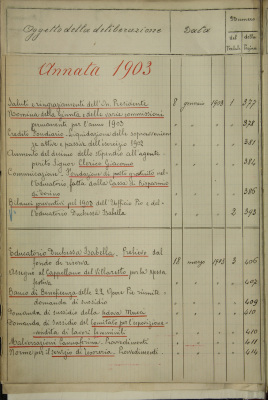 Oggetto della deliberazione Data Numero
del Verbale della Pagina
Annata 1903
Saluti e ringraziamenti dell'On. Presidente 8 gennaio 1903 1 377
Nomina della Giunta e delle varie commissioni
permanenti per l'anno 1903 " " " " 378
Credito Fondiario. Liquidazione delle sopravvenienze
attive e passive dell'esercizio 1902 " " " " 381
Aumento del decimo dello stipendio all'agente
perito Signor Clerico Giacomo " " " " 384
Comunicazione. Fondazione di posto gratuito nel
l'Educatorio, fatta dalla Cassa di Risparmio
di Torino " " " " 386
Bilanci preventivi pel 1903 dell'Ufficio Pio e del
l'Educatorio Duchessa Isabella " " " 2 393
Educatorio Duchessa Isabella. Prelievo dal
fondo di riserva 18 marzo 1903 3 406
Assegno al Cappellano del Villaretto per la spesa
" " " " 407
Banco di Beneficenza delle 22 Opere Pie riunite
domanda di sussidio " " " " 409
Domanda di sussidio della vedova " " " " 410
Domanda di sussidio del Comitato per l'esposizione
vendita di lavori femminili " " " " 410
Provvedimenti " " " " 411
Norme per il servizio di Tesoreria. Provvedimenti " " " " 414